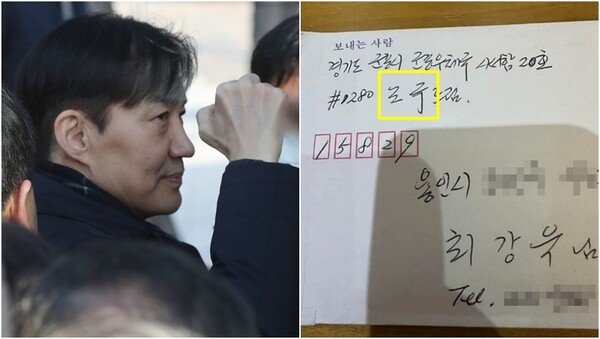 보내는 사람
경기도 군포시 군포우체국 사서함 20호
#0280 조국 드림.
15829
용인시
최강욱 님
Tel.